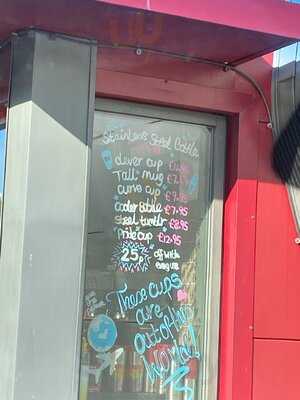 Stainless Steel Bottle
clever cup
Tall mug £7
curve cup £7.95
cooler Bottle £7.95
steel tumblr £8.95
Pride cup £12.95
25p off with
These cups
are
out of this
World!